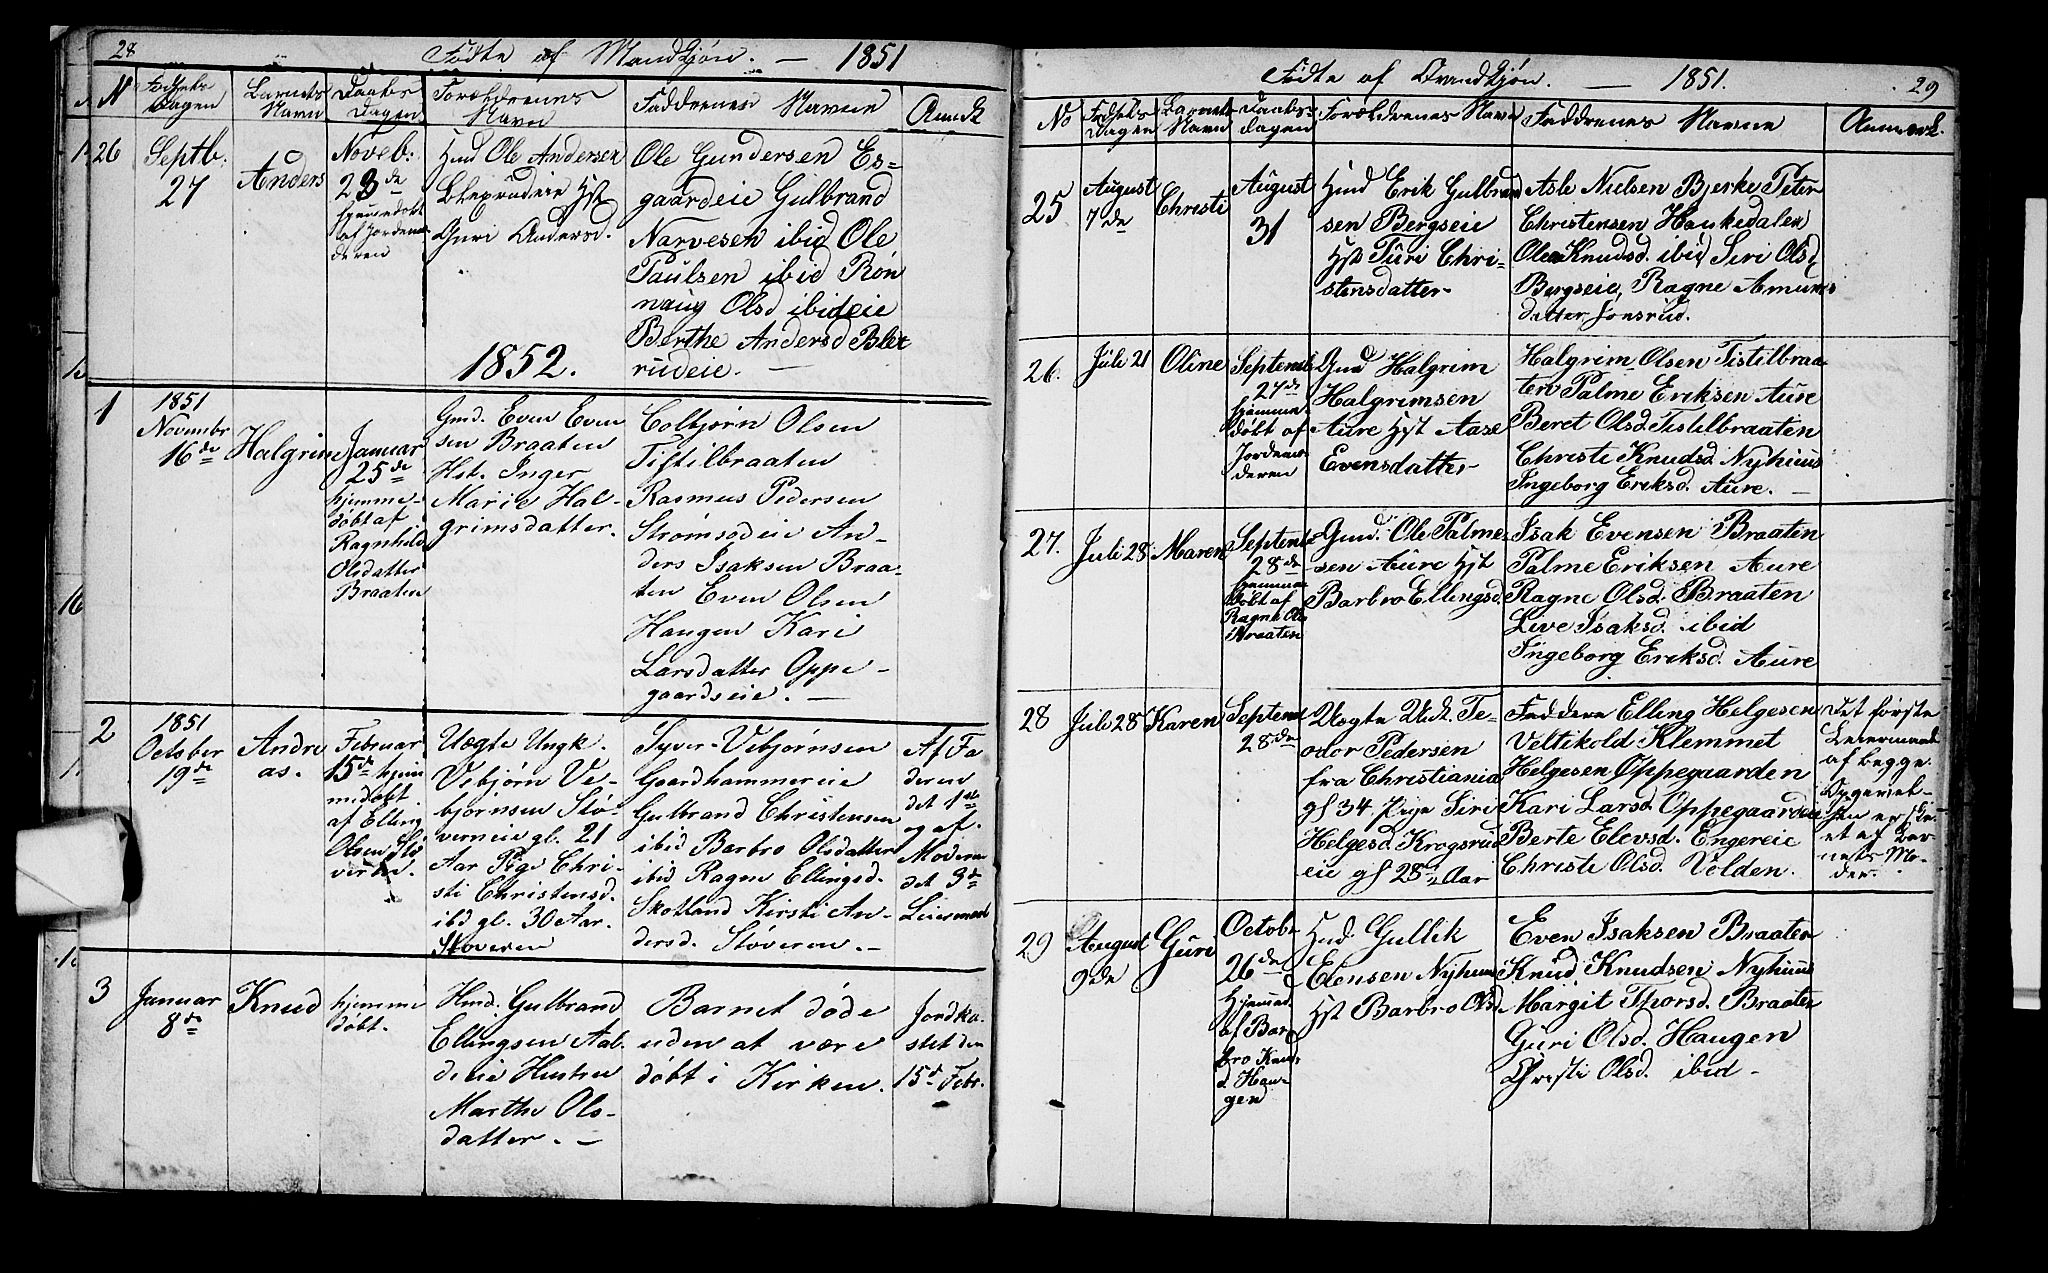 28
Födte af Mandkjøn. — 1851
N
Födsels Dagen
Barnets Navn
Daabs Dagen
Forældrenes Navn
Faddrenes Navne
Anmk
26
Septb:
27
Anders
Noveb:
23de
hjemmedöbt
af Jordemo
deren
Hmd Ole Andersen
Blexrudeie Hst
Guri Andersd.
Ole Gundersen Es-
gaardeie Gulbrand
Narvesen ibid Ole
Paulsen ibid Røn
naug Olsd ibideie
Berthe Andersd Blex
rudeie. —
1852.
1
1851
Novembr
16de
Halgrim
Januar
25de
hjemme-
döbt af
Ragnhild
Olsdatter
Braaten
Gmd. Even Even
sen Braaten
Hst. Inger
Marie Hal-
grimsdatter.
Colbjørn Olsen
Tistilbraaten
Rasmus Pedersen
Strømsødeie An-
ders Isaksen Braa-
ten Even Olsen
Haugen Kari
Larsdatter Oppe-
gaardseie. —
2
1851
October
19de
Andre
as.
Februar
15de hjem
medøbt
af Elling
Olsen Stö
veren.
Uægte Ungk.
Vebjörn Ve-
björnsen Stö-
verneie gl. 21
Aar Pige Chri-
sti Christensd.
ibd gl. 30 Aar.
Stöveren
Syver Vebjørnsen
Gaardhammereie
Gulbrand Christensen
ibid Barbro Olsdatter
ibid Ragne Ellingsd.
Skotland Kirsti An-
dersd. Stöveren. —
Af Fa
deren
det 1ste
og af
Moderen
det 3de
Leiermaal
3
Januar
8de
Knud
hjemme
döbt.
Hmd. Gulbrand
Ellingsen Aab-
deie Hustru
Marthe Ols-
datter. —
Barnet döde
uden at være
döbt i Kirken.
Jordka-
stet den
15de Febr.
29
Födte af Qvendkjön. — 1851.
No
Födsels Dagen
Barnets Navn
Daabs-
dagen
Forældrenes Navn
Faddrenes Navne
Anmærk.
25
August
7de
Christi
August
31
Hmd Erik Gulbrand
sen Bergseie
Hst Turi Chri-
stensdatter-
Asle Nielsen Bjerke Peter
Christensen Haukedalen
Olea Knudsd. ibid Siri Olsd
Bergseie, Ragne Amunds
datter Jonsrud.
26.
Juli 21
Oline
Septemb
27de
hjemme-
döbt af
Jordemo-
deren
Gmd Halgrim
Halgrimsen
Aure Hst Aase
Evensdatter
Halgrim Olsen Tistilbraa
ten Palme Eriksen Aure
Beret Olsd. Tistilbraaten
Christi Knudsd. Nyhuus
Ingeborg Eriksd. Aure. —
27.
Juli 28
Maren
Septemb
28de
hjemme
döbt af
Ragnh Ols
Braaten
Gmd. Ole Palme-
sen Aure Hst
Barbro Ellingsd.
Isak Evensen Braaten
Palme Eriksen Aure
Ragne Olsd. Braaten
Live Isaksd. ibid
Ingeborg Eriksd. Aure
28
Juli 28
Karen
Septemb
28de
Uægte Te-
odor Pedersen
fra Christiania
gl 34. Pige Siri
Helgesd. Krogsrud
eie gl 28 Aar
Faddere Elling Helgesen
Veltikold Klemmet
Helgesen Oppegaarden
Kari Larsd. Oppegaardeie
Berte Elevsd. Engereie
Christi Olsd. Volden.
Det første
Leiermaal
af begge.
Opgivel-
sen er ske-
et af Bar-
nets Mo-
der.
29
August
9de
Guri
Octobr
26de
Hjemmed.
af Bar
bro Knu-
d Hau-
gen
Hmd. Gullik
Elensen Nyhuus
Hst Barbro Olsd
Even Isaksen Braaten
Knud Knudsen Nyhuus
Margit Thorsd. Braaten
Guri Olsd. Haugen
Christi Olsd. ibid-